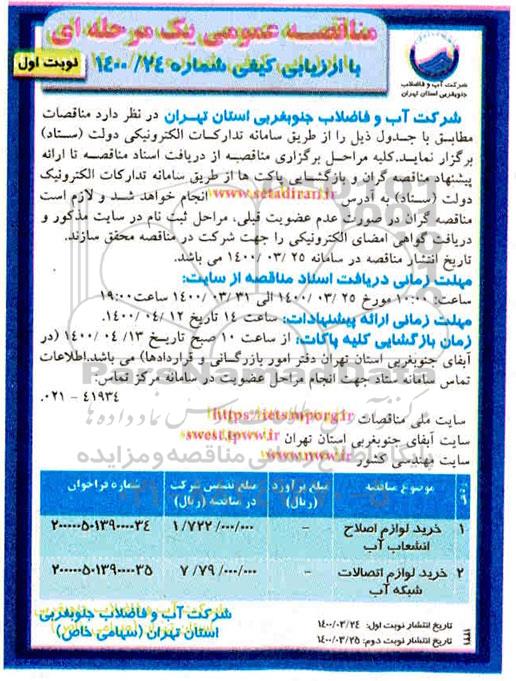 مناقصه عمومی یک مرحله ای
با ارزیابی کیفی شماره ۱۴۰۰/۲۴
نوبت اول
شرکت آب و فاضلاب
جنوبغربی استان تهران
شرکت آب و فاضلاب جنوبغربی استان تهران در نظر دارد مناقصات
مطابق با جدول ذیل را از طریق سامانه تدارکات الکترونیکی دولت (ستاد)
برگزار نماید.کلیه مراحل برگزاری مناقصه از دریافت اسناد مناقصه تا ارائه
پیشنهاد مناقصه گران و بازگشایی پاکت ها از طریق سامانه تدارکات الکترونیک
دولت (ستاد) به آدرس www.setadiran.ir انجام خواهد شد و لازم است
مناقصه گران در صورت عدم عضویت قبلی، مراحل ثبت نام در سایت مذکور و
دریافت گواهی امضای الکترونیکی را جهت شرکت در مناقصه محقق سازند.
تاریخ انتشار مناقصه در سامانه ۲۵ /۰۳ /۱۴۰۰ می باشد.
مهلت زمانی دریافت اسناد مناقصه از سایت:
ساعت: ۱۰:۰۰ مورخ ۲۵ /۰۳ /۱۴۰۰ الی ۳۱ /۰۳ /۱۴۰۰ ساعت ۱۹:۰۰
مهلت زمانی ارائه پیشنهادات: ساعت ۱۴ تاریخ ۱۲ /۰۴ /۱۴۰۰.
زمان بازگشایی کلیه پاکات: از ساعت ۱۰ صبح تاریخ ۱۳ /۰۴ /۱۴۰۰ (در
آبفای جنوبغربی استان تهران دفتر امور بازرگانی و قراردادها) می باشد.اطلاعات
تماس سامانه ستاد جهت انجام مراحل عضویت در سامانه مرکز تماس:
۰۲۱ - ۴۱۹۳۴
سایت ملی مناقصات https://iets.mporg.ir
سایت آبفای جنوبغربی استان تهران swest.tpww.ir
سایت مهندسی کشور
ردیف موضوع مناقصه مبلغ برآورد (ریال) مبلغ تضمین شرکت در مناقصه (ریال) شماره فراخوان
۱ خرید لوازم اصلاح انشعاب آب - ۱/۷۲۲/۰۰۰/۰۰۰ ۲۰۰۰۰۰۵۰۱۳۹۰۰۰۰۳۴
۲ خرید لوازم اتصالات شبکه آب - ۷/۷۹۰/۰۰۰/۰۰۰ ۲۰۰۰۰۰۵۰۱۳۹۰۰۰۰۳۵
شرکت آب و فاضلاب جنوبغربی
استان تهران (سهامی خاص)
تاریخ انتشار نوبت اول: ۱۴۰۰/۰۳/۲۴
تاریخ انتشار نوبت دوم: ۱۴۰۰/۰۳/۲۵
۱۲۲۱
ParsNamadData
پایگاه اطلاع رسانی مناقصه و مزایده